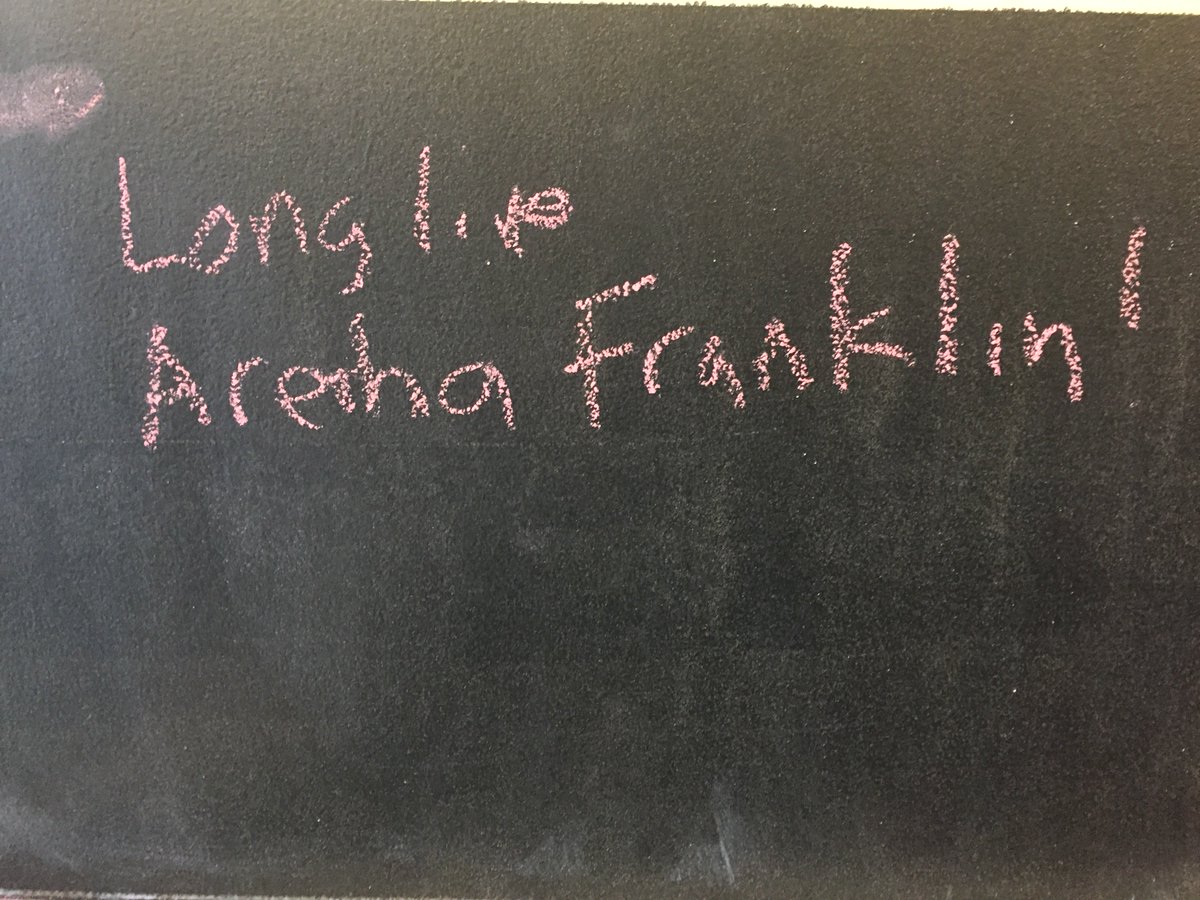 Long live
Aretha Franklin!